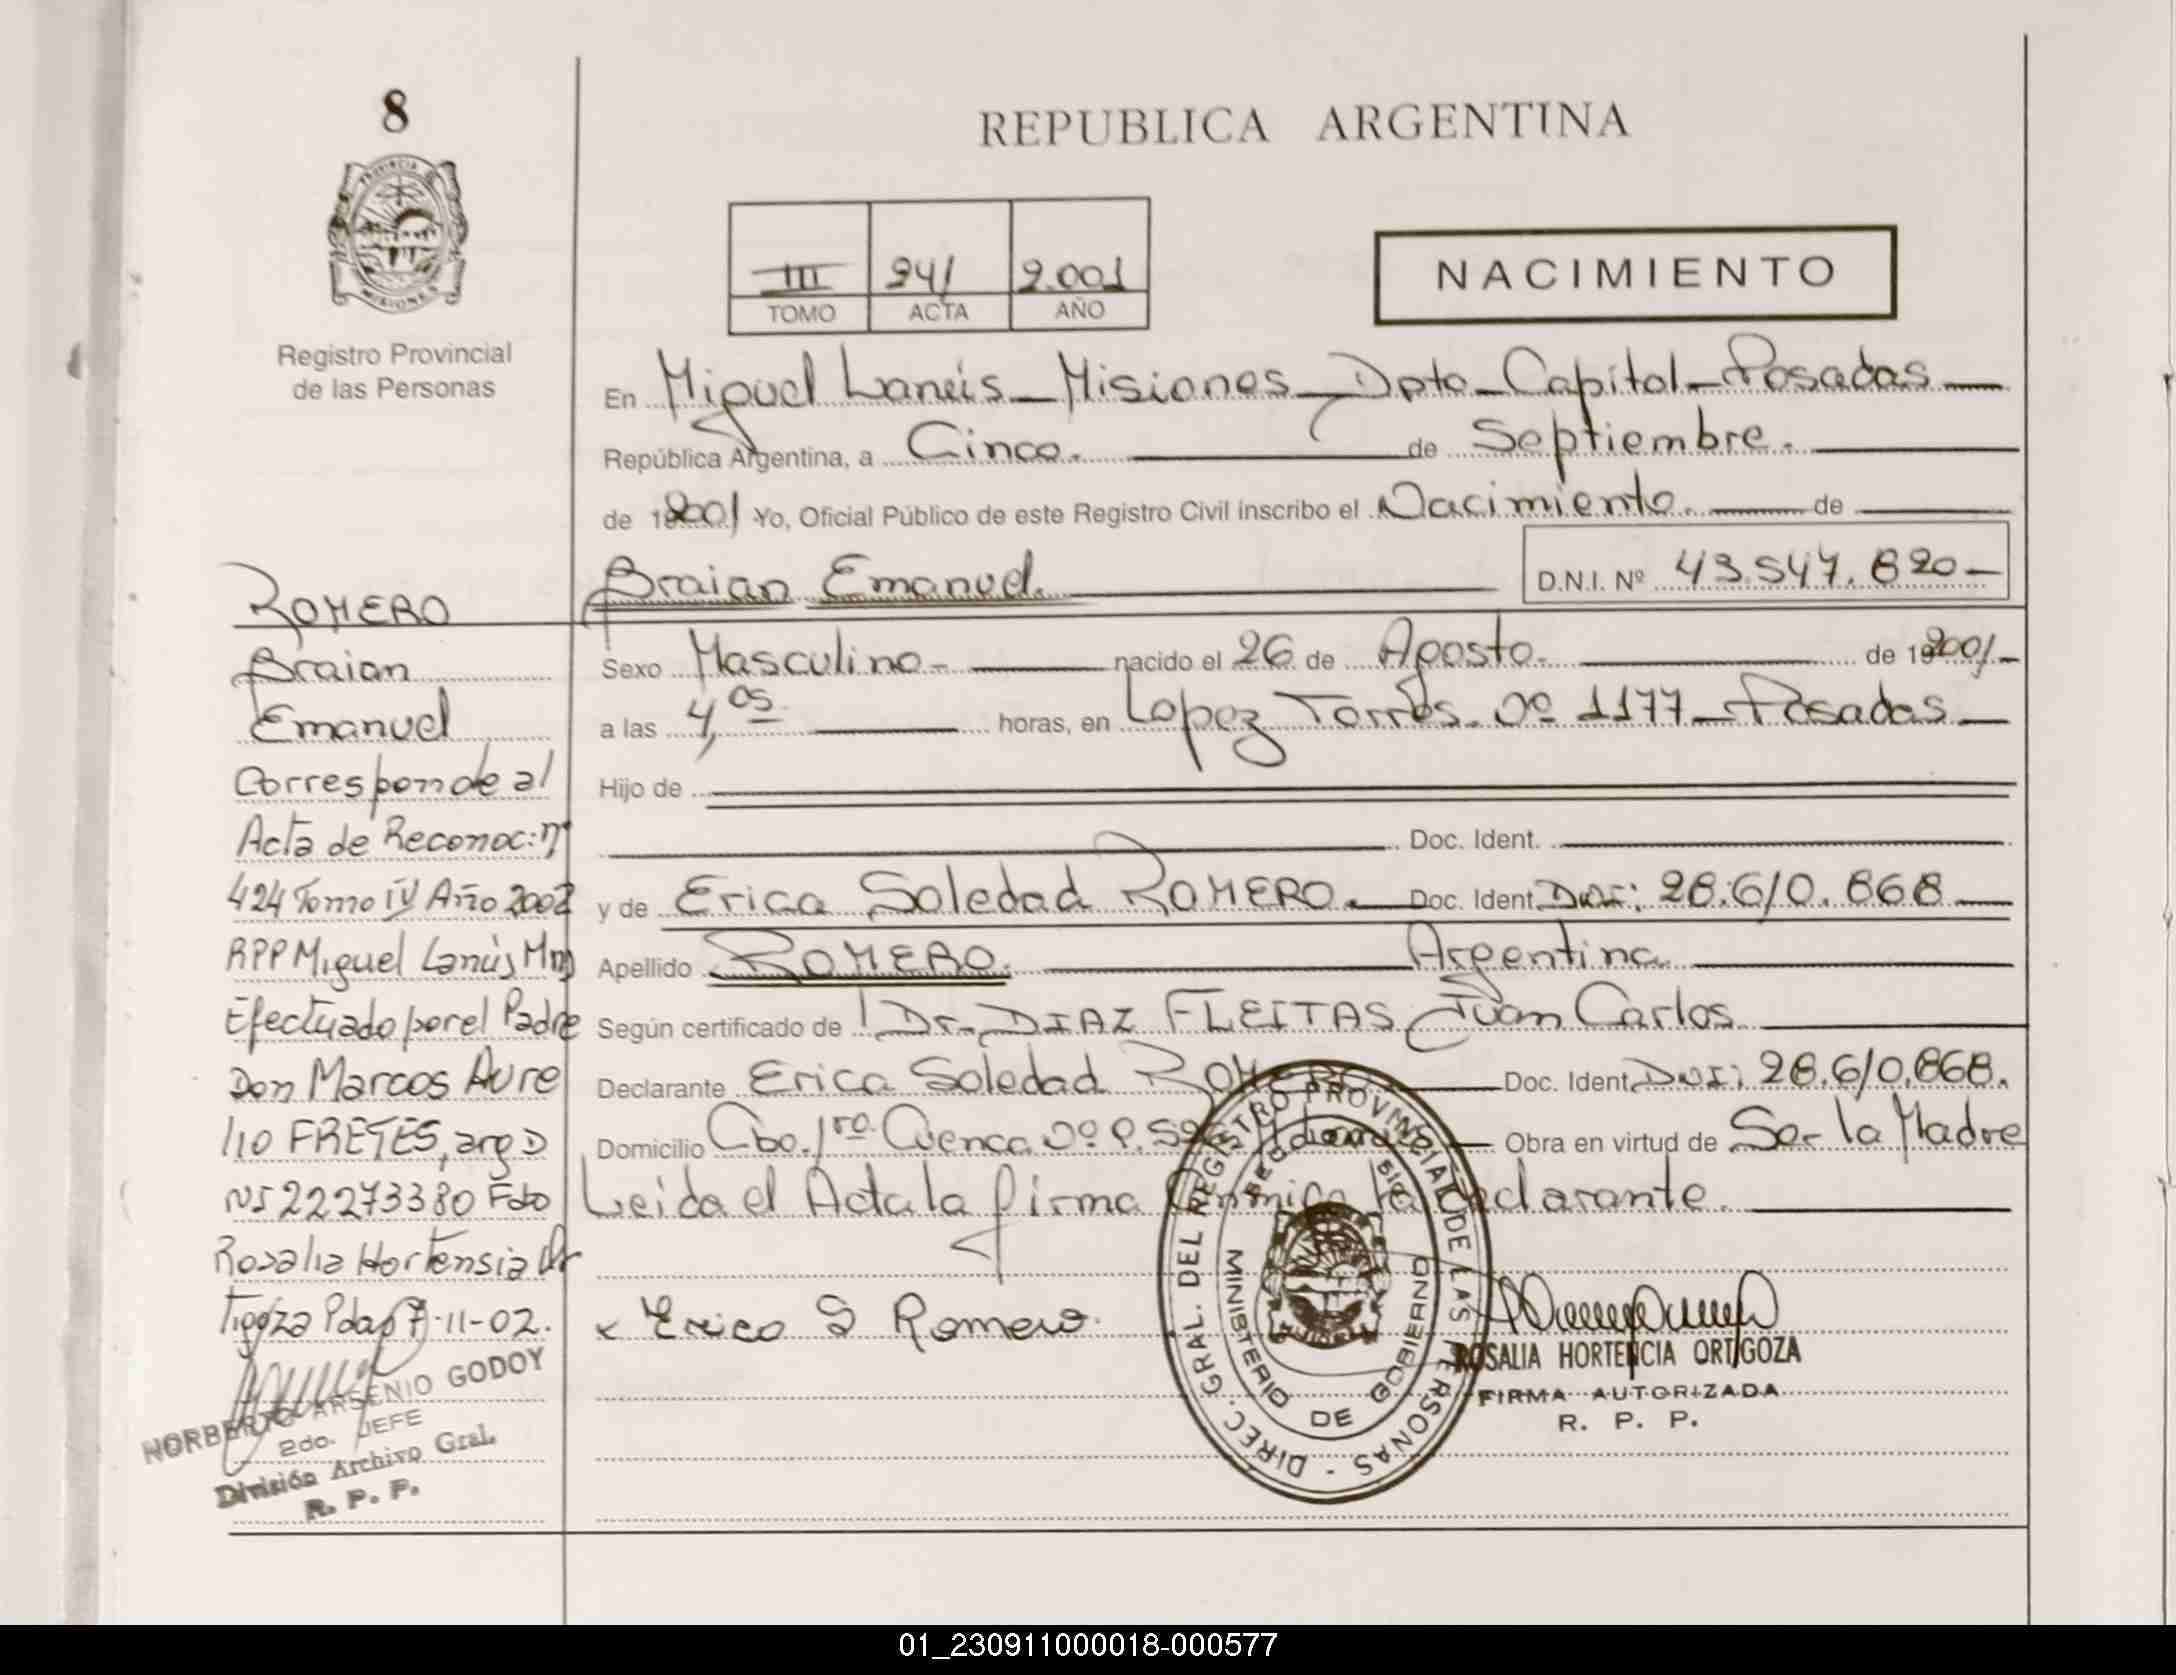 8
PROVINCIA DE
MISIONES
Registro Provincial
de las Personas
REPUBLICA ARGENTINA
III 241 2.001
TOMO ACTA AÑO
NACIMIENTO
En Miguel Lanús - Misiones - Dpto - Capital - Posadas
República Argentina, a Cinco. de Septiembre.
de 2001 Yo, Oficial Público de este Registro Civil inscribo el Nacimiento. de
Braian Emanuel. D.N.I. Nº 43.547.820-
Sexo Masculino- nacido el 26 de Agosto. de 2001-
a las 4,05 horas, en Lopez Torres. nº 1177 - Posadas
Hijo de
Doc. Ident.
y de Erica Soledad ROMERO. Doc. Ident. DNI: 28.610.868
Apellido ROMERO. Argentina
Según certificado de Dr. DIAZ FLEITAS Juan Carlos
Declarante Erica Soledad ROMERO Doc. Ident. DNI: 28.610.868.
Domicilio Cbo. 1ro. Cuenca nº Obra en virtud de Ser la Madre
Leida el Acta la firma Conmigo la declarante.
x Erica S Romero.
ROSALIA HORTENCIA ORTIGOZA
FIRMA AUTORIZADA
R. P. P.
DIREC. GRAL. DEL REGISTRO PROVINCIAL DE LAS PERSONAS -
MINISTERIO DE GOBIERNO
ROMERO
Braian
Emanuel
Corresponde al
Acta de Reconoc: nº
424 Tomo IV Año 2002
RPP Miguel Lanús Mns
Efectuado por el Padre
Don Marcos Aure
lio FRETES, arg D
NI 22273380 Fdo
Rosalia Hortensia Or
tigoza Pdas 7-11-02.
NORBERTO ARSENIO GODOY
2do. JEFE
División Archivo Gral.
R. P. P.
01_230911000018-000577